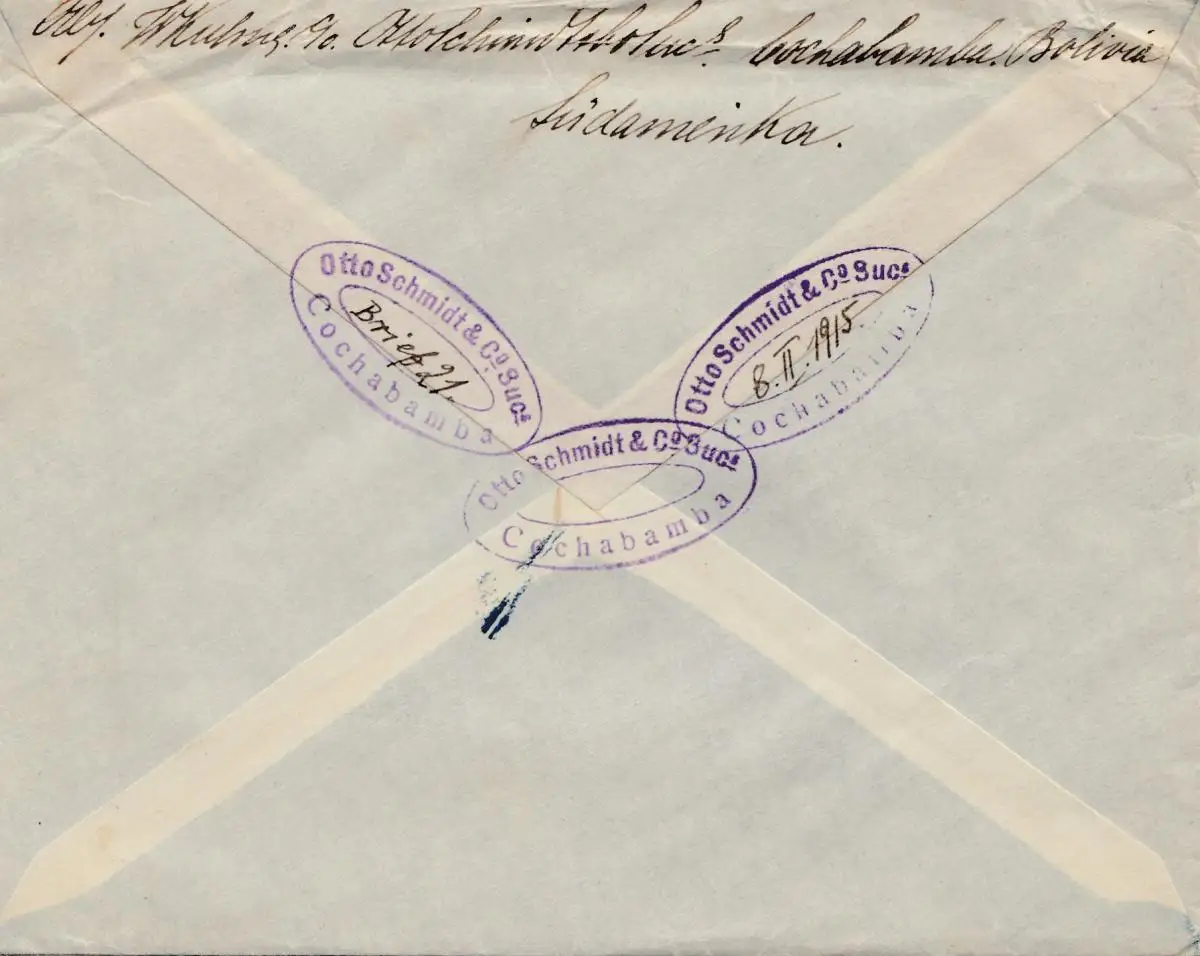 Abs. W Kulng. c/o. Otto Schmidt & Co Sucs. Cochabamba. Bolivia
Südamerika.
Otto Schmidt & Co Sucs
Brief 21.
Cochabamba
Otto Schmidt & Co Sucs
8. II. 1915.
Cochabamba
Otto Schmidt & Co Sucs
Cochabamba